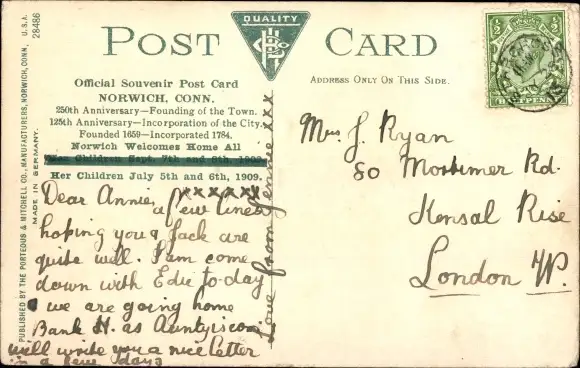 QUALITY
POST CARD
Official Souvenir Post Card
NORWICH, CONN.
250th Anniversary—Founding of the Town.
125th Anniversary—Incorporation of the City.
Founded 1659—Incorporated 1784.
Norwich Welcomes Home All
Her Children Sept. 7th and 8th, 1909.
Her Children July 5th and 6th, 1909.
ADDRESS ONLY ON THIS SIDE.
PUBLISHED BY THE PORTEOUS & MITCHELL CO., MANUFACTURERS, NORWICH, CONN., U.S.A.
MADE IN GERMANY.
28486
Dear Annie, xxxxxx
a few lines
hoping you & Jack are
quite well. I am come
down with Edie to-day
we are going home
Bank H. as Aunty is
will write you a nice letter
in a few days
Love from Jennie xxx
Mrs J. Ryan
80 Mortimer Rd.
Kensal Rise
London W.
½ ½
PENNY